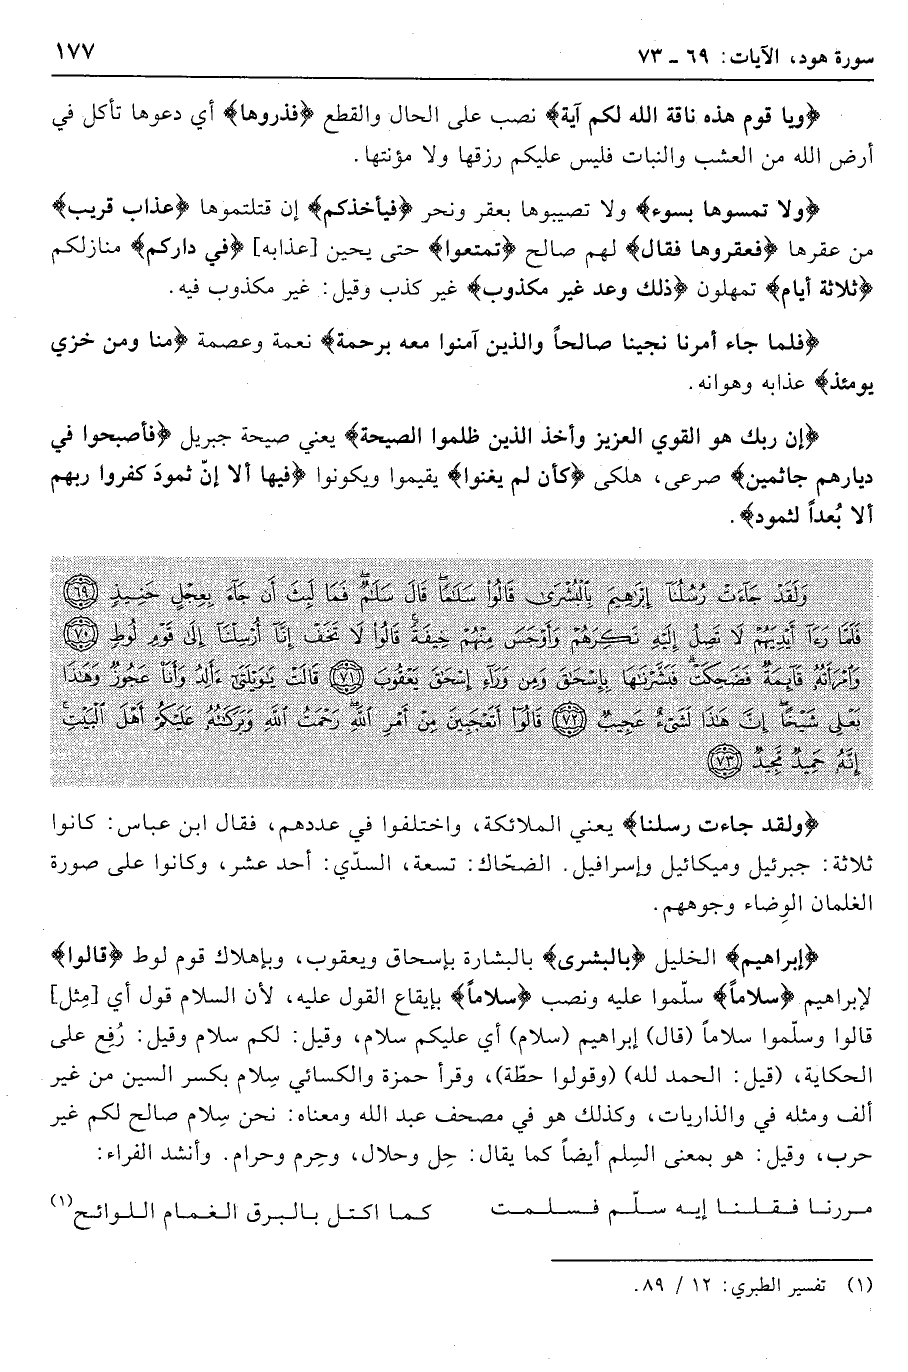 سورة هود، الآيات: ٦٩ ـ ٧٣ ١٧٧
﴿ويا قوم هذه ناقة الله لكم آية﴾ نصب على الحال والقطع ﴿فذروها﴾ أي دعوها تأكل في
أرض الله من العشب والنبات فليس عليكم رزقها ولا مؤنتها.
﴿ولا تمسوها بسوء﴾ ولا تصيبوها بعقر ونحر ﴿فيأخذكم﴾ إن قتلتموها ﴿عذاب قريب﴾
من عقرها ﴿فعقروها فقال﴾ لهم صالح ﴿تمتعوا﴾ حتى يحين [عذابه] ﴿في داركم﴾ منازلكم
﴿ثلاثة أيام﴾ تمهلون ﴿ذلك وعد غير مكذوب﴾ غير كذب وقيل: غير مكذوب فيه.
﴿فلما جاء أمرنا نجينا صالحاً والذين آمنوا معه برحمة﴾ نعمة وعصمة ﴿منا ومن خزي
يومئذ﴾ عذابه وهوانه.
﴿إن ربك هو القوي العزيز وأخذ الذين ظلموا الصيحة﴾ يعني صيحة جبريل ﴿فأصبحوا في
ديارهم جاثمين﴾ صرعى، هلكى ﴿كأن لم يغنوا﴾ يقيموا ويكونوا ﴿فيها ألا إنّ ثمودَ كفروا ربهم
ألا بُعداً لثمود﴾.
وَلَقَدْ جَاءَتْ رُسُلُنَا إِبْرَاهِيمَ بِالْبُشْرَى قَالُوا سَلَامًا قَالَ سَلَامٌ فَمَا لَبِثَ أَن جَاءَ بِعِجْلٍ حَنِيذٍ ٦٩
فَلَمَّا رَءَا أَيْدِيَهُمْ لَا تَصِلُ إِلَيْهِ نَكِرَهُمْ وَأَوْجَسَ مِنْهُمْ خِيفَةً قَالُوا لَا تَخَفْ إِنَّا أُرْسِلْنَا إِلَى قَوْمِ لُوطٍ ٧٠
وَامْرَأَتُهُ قَائِمَةٌ فَضَحِكَتْ فَبَشَّرْنَاهَا بِإِسْحَاقَ وَمِن وَرَاءِ إِسْحَاقَ يَعْقُوبَ ٧١ قَالَتْ يَاوَيْلَتَى ءَأَلِدُ وَأَنَا عَجُوزٌ وَهَذَا
بَعْلِي شَيْخًا إِنَّ هَذَا لَشَيْءٌ عَجِيبٌ ٧٢ قَالُوا أَتَعْجَبِينَ مِنْ أَمْرِ اللَّهِ رَحْمَتُ اللَّهِ وَبَرَكَاتُهُ عَلَيْكُمْ أَهْلَ الْبَيْتِ
إِنَّهُ حَمِيدٌ مَّجِيدٌ ٧٣
﴿ولقد جاءت رسلنا﴾ يعني الملائكة، واختلفوا في عددهم، فقال ابن عباس: كانوا
ثلاثة: جبرئيل وميكائيل وإسرافيل. الضحّاك: تسعة، السدّي: أحد عشر، وكانوا على صورة
الغلمان الوِضاء وجوههم.
﴿إبراهيم﴾ الخليل ﴿بالبشرى﴾ بالبشارة بإسحاق ويعقوب، وبإهلاك قوم لوط ﴿قالوا﴾
لإبراهيم ﴿سلاماً﴾ سلّموا عليه ونصب ﴿سلاماً﴾ بإيقاع القول عليه، لأن السلام قول أي [مِثل]
قالوا وسلّموا سلاماً (قال) إبراهيم (سلام) أي عليكم سلام، وقيل: لكم سلام وقيل: رُفِع على
الحكاية، (قيل: الحمد لله) (وقولوا حطّة)، وقرأ حمزة والكسائي سِلام بكسر السين من غير
ألف ومثله في والذاريات، وكذلك هو في مصحف عبد الله ومعناه: نحن سِلام صالح لكم غير
حرب، وقيل: هو بمعنى السِلم أيضاً كما يقال: حِل وحلال، وحِرم وحرام. وأنشد الفراء:
مررنا فقلنا إيه سلّم فسلمت كما اكتل بالبرق الغمام اللوائح(١)
(١) تفسير الطبري: ١٢ / ٨٩.